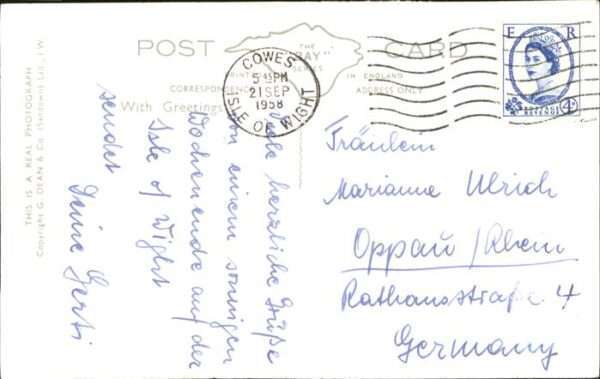 POST CARD
THE
"BAY"
SERIES
PRINTED IN ENGLAND
CORRESPONDENCE ADDRESS ONLY
With Greetings
COWES
5 45 PM
21 SEP
1958
ISLE OF WIGHT
E R
POSTAGE
REVENUE
4D
THIS IS A REAL PHOTOGRAPH
Copyright G. DEAN & Co. Ltd., I.W.
Viele herzliche Grüße
von einem sonnigen
Wochenende auf der
Isle of Wight
sendet
Deine Gerti
Fräulein
Marianne Ulrich
Oppau/Rhein
Rathausstraße 4
Germany